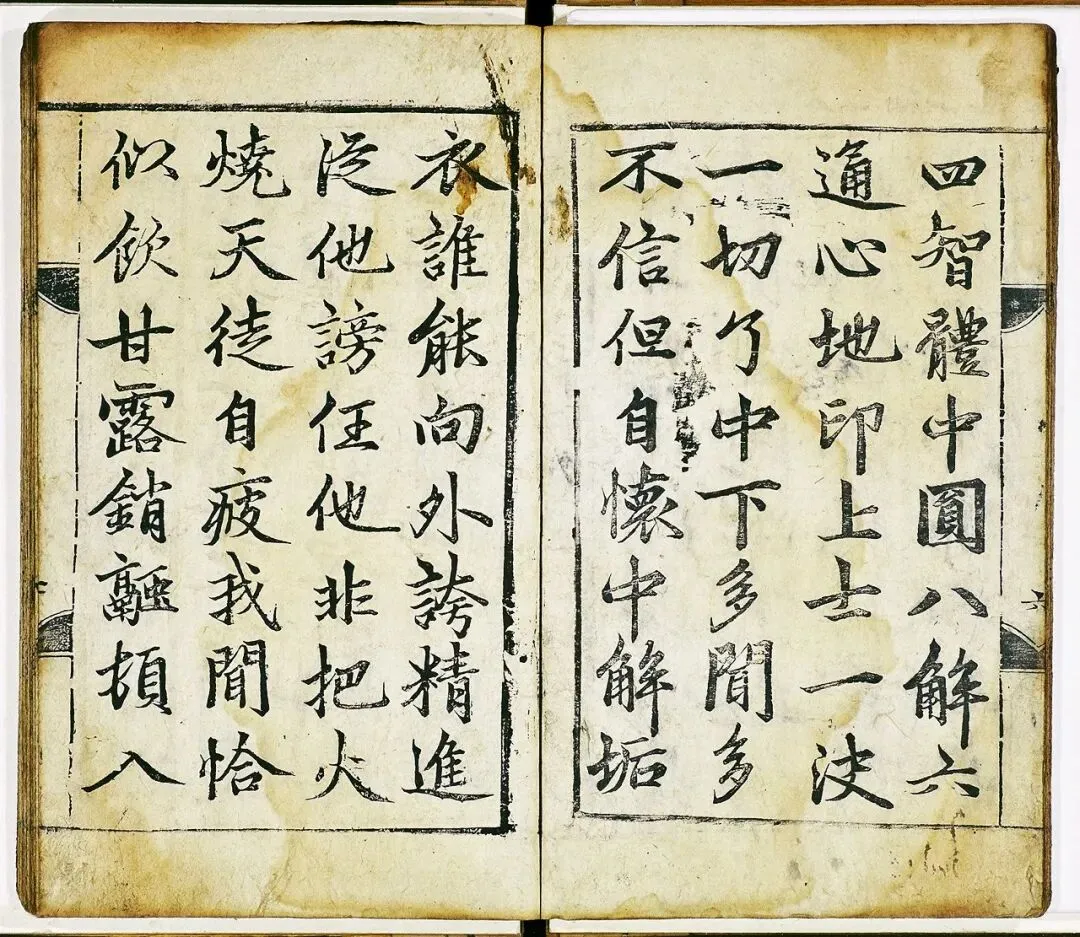 四智體中圓八解六
通心地印上士一決
一切了中下多聞多
不信但自懷中解垢
衣誰能向外誇精進
從他謗任他非把火
燒天徒自疲我聞恰
似飲甘露銷融頓入